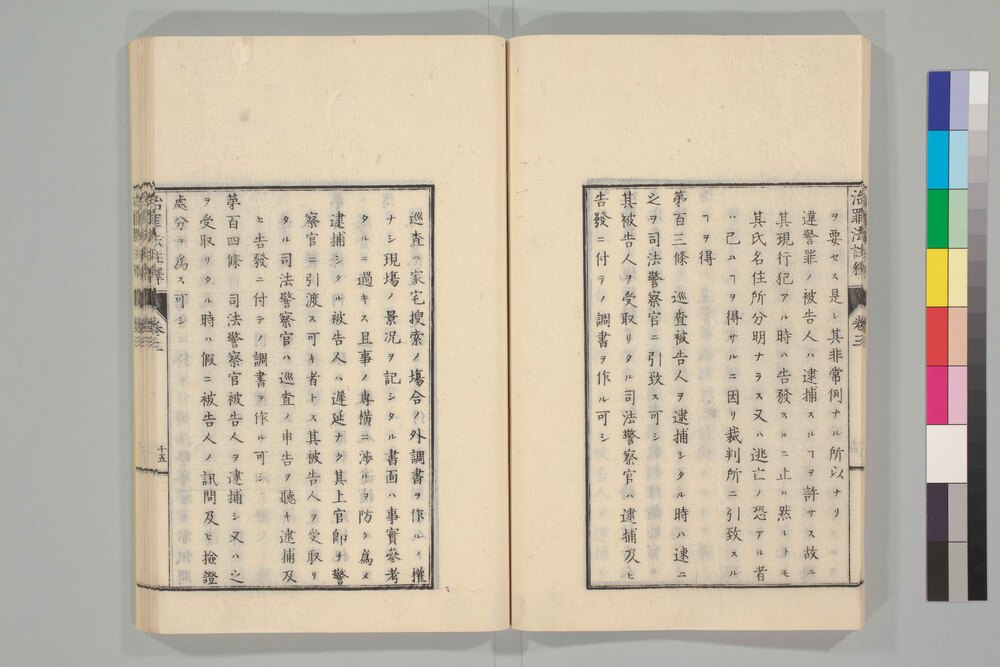 治罪法註釋 卷三
ヲ要セス是レ其非常例ナル所以ナリ
違警罪ノ被告人ハ逮捕スルヿヲ許サス故ニ
其現行犯アル時ハ告發スルニ止ル然レトモ
其氏名住所分明ナラス又ハ逃亡ノ恐アル者
ハ已ムヿヲ得サルニ因リ裁判所ニ引致スル
ヿヲ得
第百三條 巡査被告人ヲ逮捕シタル時ハ速ニ
之ヲ司法警察官ニ引致ス可シ
其被告人ヲ受取リタル司法警察官ハ逮捕及ヒ
告發ニ付テノ調書ヲ作ル可シ
巡査ハ家宅搜索ノ塲合ノ外調書ヲ作ルノ權
ナシ現塲ノ景况ヲ記シタル書面ハ事實參考
タルニ過キス且事ノ專横ニ渉ルヲ防ク爲メ
逮捕シタル被告人ハ遲延ナク其上官即チ警
察官ニ引渡ス可キ者トス其被告人ヲ受取リ
タル司法警察官ハ巡査ノ申告ヲ聽キ逮捕及
ヒ告發ニ付テノ調書ヲ作ル可シ
第百四條 司法警察官被告人ヲ逮捕シ又ハ之
ヲ受取リタル時ハ假ニ被告人ノ訊問及ヒ檢證
處分ヲ爲ス可シ
治罪法註釋 卷三 十五